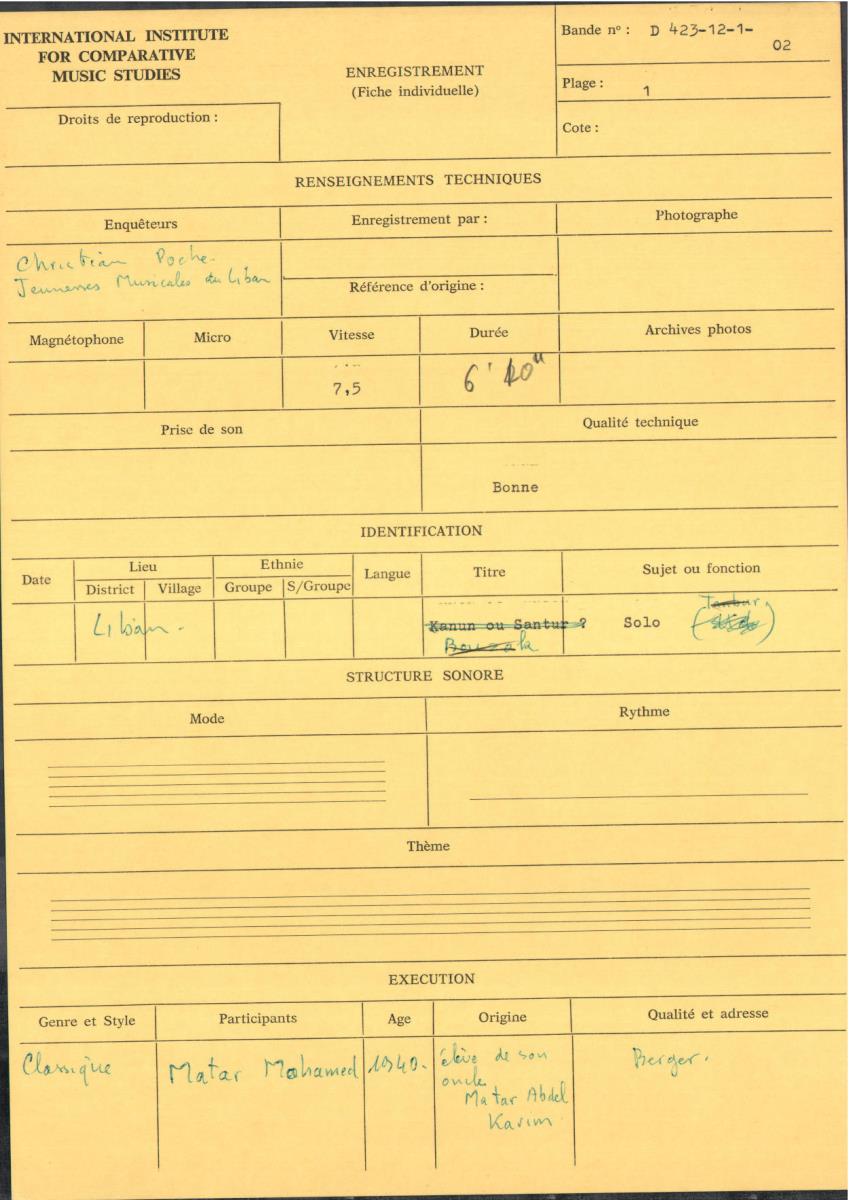 INTERNATIONAL INSTITUTE
FOR COMPARATIVE
MUSIC STUDIES
Droits de reproduction :
ENREGISTREMENT
(Fiche individuelle)
Bande nº : D 423-12-1-
02
Plage : 1
Cote :
RENSEIGNEMENTS TECHNIQUES
Enquêteurs
Enregistrement par :
Photographe
Christian Poche.
Jeunesses Musicales du Liban
Référence d'origine :
Magnétophone
Micro
Vitesse
Durée
Archives photos
7,5
6' 40"
Prise de son
Qualité technique
Bonne
IDENTIFICATION
Date
Lieu
Ethnie
Langue
Titre
Sujet ou fonction
District
Village
Groupe
S/Groupe
Liban.
Kanun ou Santur ?
Solo
Tanbur
STRUCTURE SONORE
Mode
Rythme
Thème
EXECUTION
Genre et Style
Participants
Age
Origine
Qualité et adresse
Classique
Matar Mohamed
1940.
élève de son
oncle
Matar Abdel
Karim
Berger.